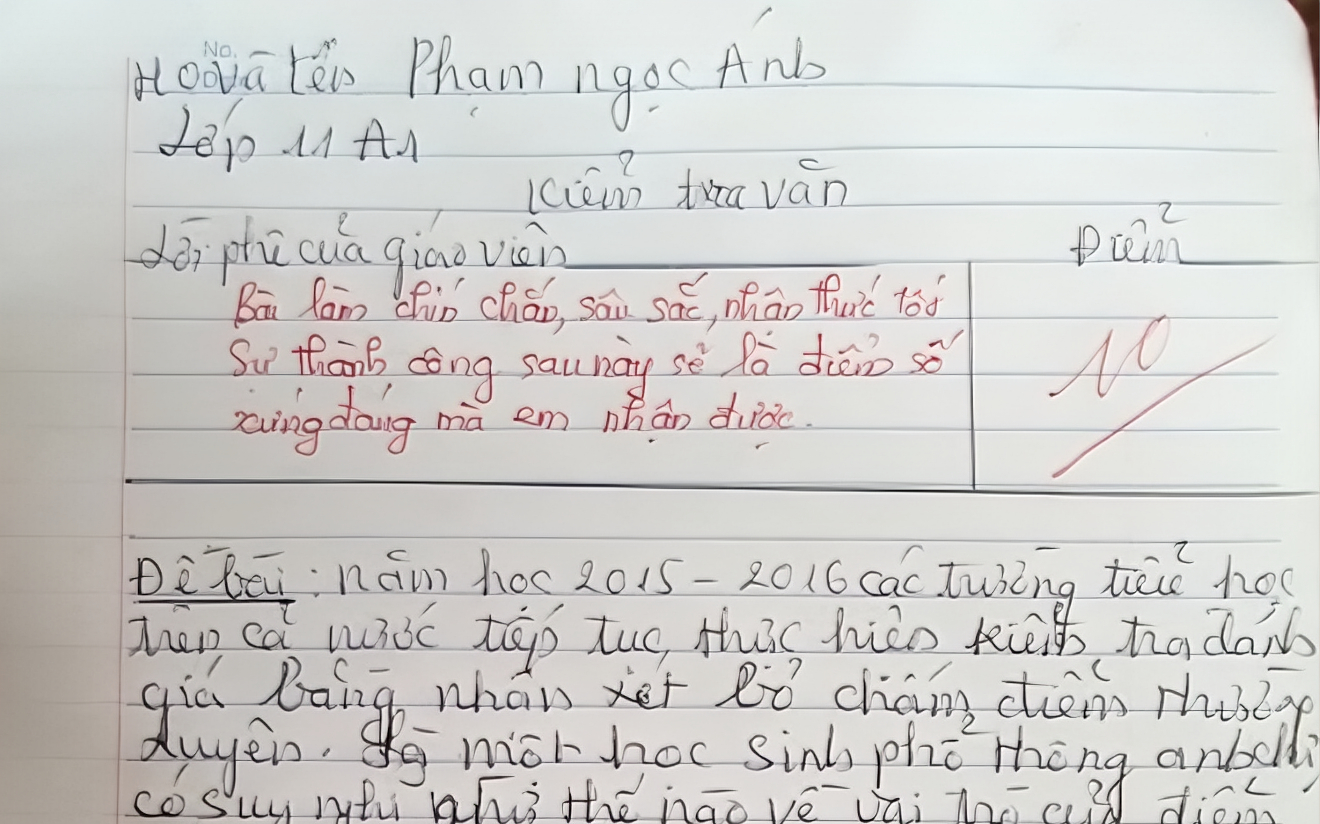 No.
Họ và tên Phạm ngọc Ánh
Lớp 11 A1
Kiểm tra văn
Lời phê của giáo viên
Điểm
Bài làm chỉn chắn, sâu sắc, nhận thức tốt
Sự thành công sau này sẽ là điểm số
xứng đáng mà em nhận được.
10
Đề bài: năm học 2015 - 2016 các trường tiểu học
trên cả nước tiếp tục thực hiện kiểm tra đánh
giá bằng nhận xét bỏ chấm điểm thường
duyên. Là một học sinh phổ thông anh chị
có suy nghĩ như thế nào về vai trò của điểm